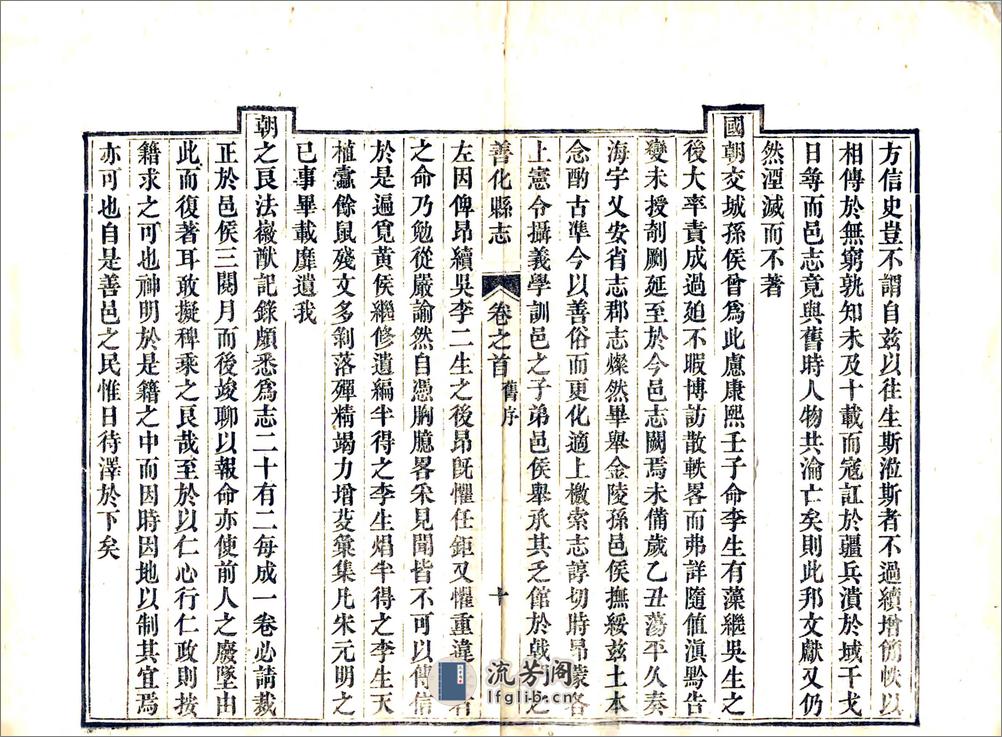 方信史豈不謂自茲以往生斯涖斯者不過續增簡帙以
相傳於無窮孰知未及十載而寇訌於疆兵潰於域干戈
日尋而邑志竟與舊時人物共淪亡矣則此邦文獻又仍
然湮滅而不著
國朝交城孫侯曾爲此慮康熙壬子命李生有藻繼吳生之
後大率責成過廹不暇博訪散軼畧而弗詳隨値滇黔告
變未授剞劂延至於今邑志闕焉未備歲乙丑蕩平久奏
海宇乂安省志郡志燦然畢舉金陵孫邑侯撫綏茲土本
念酌古準今以善俗而更化適上檄索志諄切時昂蒙各
上憲令攝義學訓邑之子弟邑侯舉承其乏館於戟門之
善化縣志
卷之首 舊序
十
左因俾昂續吳李二生之後昂旣懼任鉅又懼重違
之命乃勉從嚴諭然自憑胸臆畧釆見聞皆不可以傳信
於是遍覓黃侯繼修遺編半得之李生焻半得之李生天
植蠹餘鼠殘文多剝落殫精竭力增芟彙集凡宋元明之
已事畢載靡遺我
朝之良法嶶猷記錄頗悉爲志二十有二每成一卷必請裁
正於邑侯三閱月而後竣聊以報命亦使前人之廢墜由
此而復著耳敢擬稗乘之良哉至於以仁心行仁政則按
籍求之可也神明於是籍之中而因時因地以制其宜焉
亦可也自是善邑之民惟日待澤於下矣
流芳阁
lfglib.com